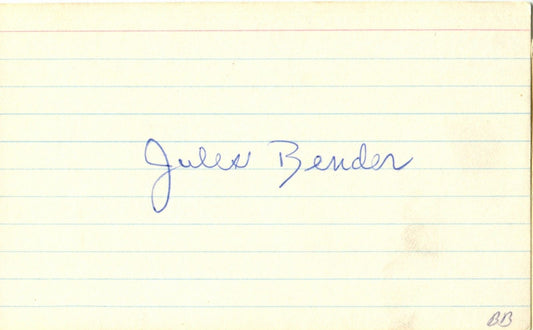 Jules Bender
BB